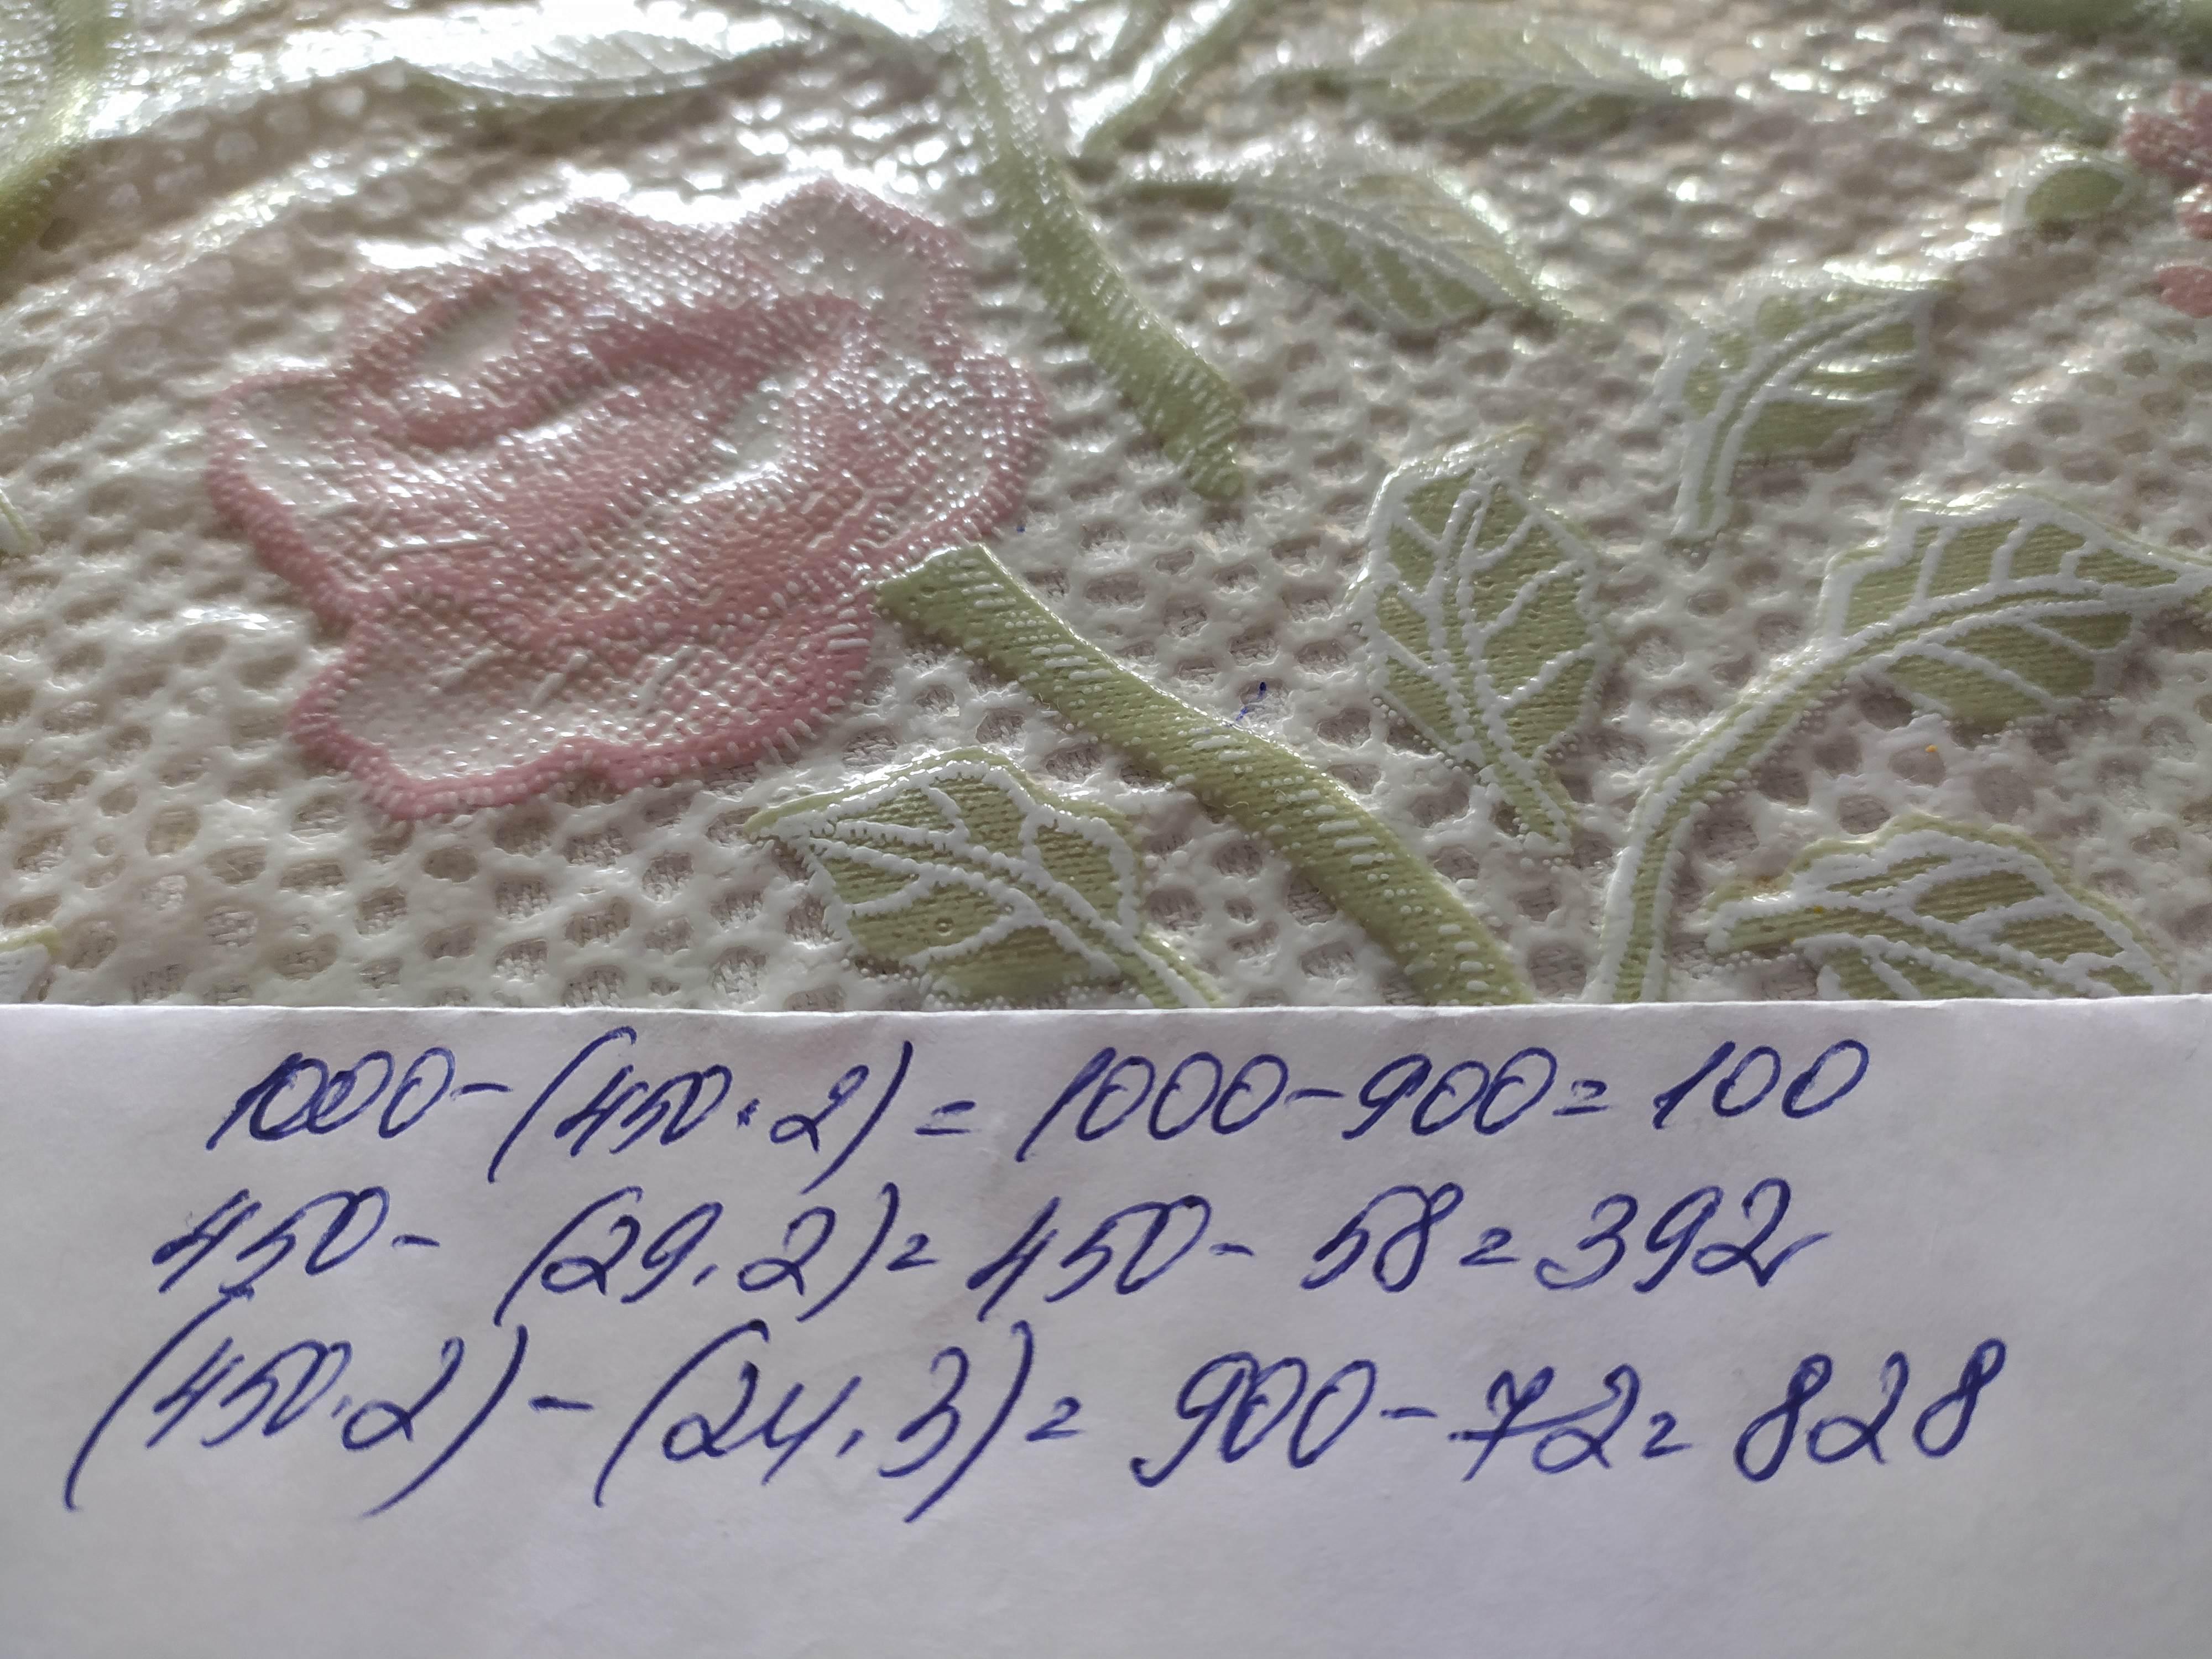 1000-(450·2)=1000-900=100
450-(29·2)=450-58=392
(450·2)-(24·3)=900-72=828